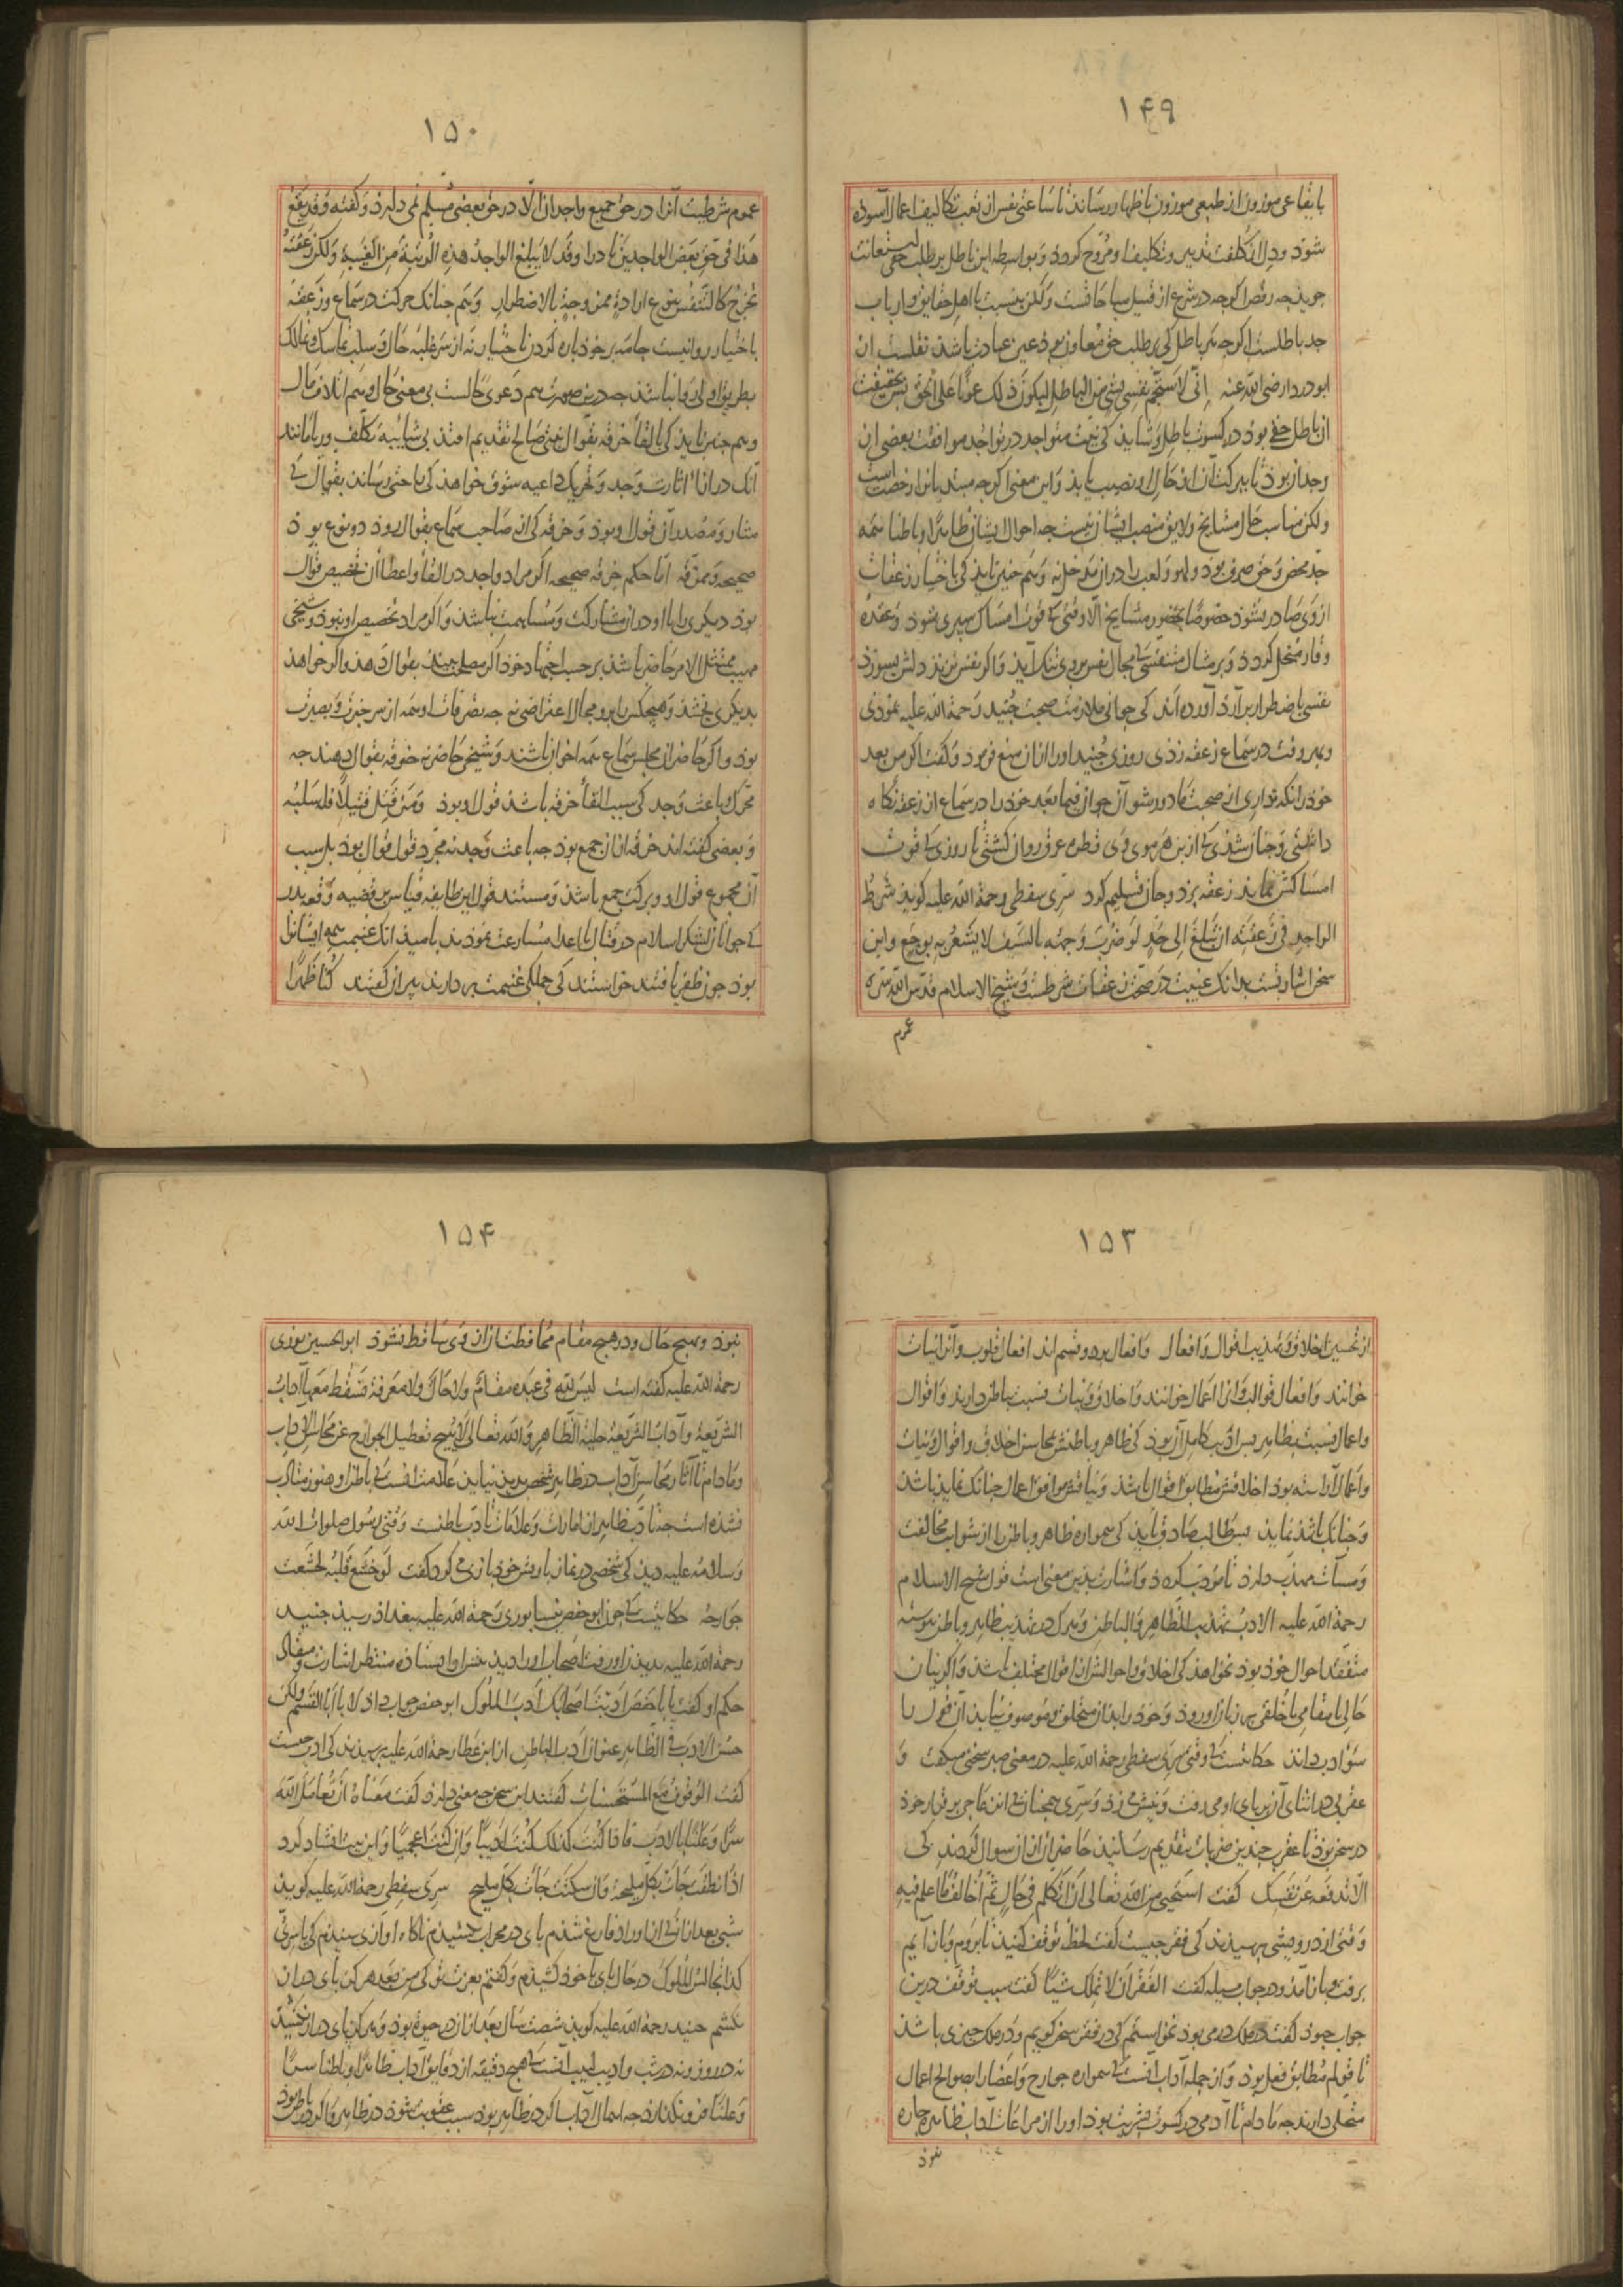 ۱۴۹
بایقاعی موزون از طبعی موزون باظهار رساند تا ساعتی نفس از تعب تکالیف اعمال آسوده
شود ودل از کلفت تدبیر وتکلیف او مروح کردد وبواسطه این باطل بر طلب حق استعانت
جوید چه رقص اکرچه در شرع از قبیل مباحاتست ولکن بنسبت با اهل حقایق وارباب
جد باطلست اکرچه هر باطل کی بر طلب حق معاون بود عین عبادت باشد نقلست از
ابو دردا رضی الله عنه اِنّی لاستجم نفسی بشیء من الباطل لیکون ذلک عونا علی الحق پس بحقیقت
آن باطل حقی بود در کسوت باطل وشاید کی نیت متواجد در تواجد موافقت بعضی از
وجدان بود تا ببرکت آن از حال او نصیب یابد واین معنی اکرچه مبتدیانرا رخصت است
ولکن مناسب حال مشایخ ولایق منصب ایشان نیست چه احوال ایشان ظاهرا وباطنا همه
جد محض وحق صرف بود ولهو ولعب را در آن مدخل نه وهم چنین باید کی باختیار زعقات
از وی صادر نشود خصوصا بحضور مشایخ الا وقتی کی قوت امساک سپری شود وعقده
وقار منحل کردد وبر مثال متنفسی کی مجال نفس بر وی تنک آید واکر نفس نزند دلش بسوزد
نفسی باضطرار بر آرد آورده اند کی جوانی ملازمت صحبت جنید رحمة الله علیه نمودی
وبهر وقت در سماع زعقه زدی روزی جنید او را از آن منع فرمود وکفت اکر من بعد
خود را نکه نداری از صحبت ما دور شو آن جوان فیما بعد خود را در سماع از زعقه نکاه
داشتی وچنان شدی کی از بن هر موی وی قطره عرق روان کشتی تا روزی کی قوت
امساکش نماند زعقه بزد وجان تسلیم کرد سری سقطی رحمة الله علیه کوید شرط
الواجد فی زعقته ان تبلغ الی حد لو ضرب وجهه بالسیف لا یشعر به بوجع واین
سخن اشارتست بدانک غیبت در صحت زعقات شرطست وشیخ الاسلام قدس الله سره
عموم
۱۵۰
عموم شرطیت آنرا در حق جمیع واجدان الا در حق بعضی مسلم نمی دارد وکفته وقد یقع
هذا فی حق بعض الواجدین نادرا وقد لا یبلغ الواجد هذه الرتبة من الغیبة ولکن زعقته
تخرج کالتنفس بنوع ارادة ممزوجة بالاضطرار وهم چنانک حرکت در سماع وزعقه
باختیار روا نیست جامه بر خود پاره کردن باختیار نه از سر غلبه حال وسلب تماسک وتمالک
بطریق اولی روا نباشد چه درین صورت هم دعوی حالست بی معنی حال وهم اتلاف مال
وهم چنین باید کی بالقاء خرقه بقوال نیتی صالح تقدیم افتد بی شایبه تکلف وریا مانند
آنک در ازاء اثارت وجد وتحریک داعیه شوق خواهد کی راحتی رساند بقوال کی
مثار ومصدر آن قول او بود وخرقه کی از صاحب سماع بقوال رود دو نوع بود
صحیحه وممزقه اما حکم خرقه صحیحه اکر مراد واجد در القاء واعطاء آن تخصیص قوال
بود دیکری را با او در آن مشارکت ومساهمت نباشد واکر مراد تخصیص او نبود وشیخی
مهیب ممتثل الامر حاضر باشد بر حسب اجتهاد خود اکر مصلحت بیند بقوال دهد واکر خواهد
بدیکری بخشد وهیچکس را برو مجال اعتراض نه چه تصرفات او همه از سر خبرت وبصیرت
بود واکر حاضران مجلس سماع همه اخوان باشند وشیخی حاضر نه خرقه بقوال دهند چه
محرک باعث وجد کی سبب القاء خرقه باشد قول او بود ومن قتل قتیلا فله سلبه
وبعضی کفته اند خرقه از آن جمع بود چه باعث وجد نه مجرد قول قوال بود بل سبب
آن مجموع قول او وبرکت جمع باشد ومستند قول این طایفه قیاس بر قضیه وقعه بدر
کی جوانان لشکر اسلام در قتال با اعدا مسارعت نمودند بامید آنک غنیمت همه ایشانرا
بود چون ظفر یافتند خواستند کی جملکی غنیمت بر دارند پیران کفتند کنا ظهرا
۱۵۳
از تحسین اخلاق وتهذیب اقوال وافعال وافعال بر دو قسم اند افعال قلوب وآنرا نیات
خوانند وافعال قوالب وآنرا اعمال خوانند واخلاق ونیات نسبت بباطن دارند واقوال
واعمال نسبت بظاهر پس ادیب کامل آن بود کی ظاهر وباطنش بمحاسن اخلاق واقوال ونیات
واعمال آراسته بود اخلاقش مطابق اقوال باشد ونیاتش موافق اعمال چنانک نماید باشد
وچنانک باشد نماید پس طالب صادق باید کی همواره ظاهر وباطن را از شوایب مخالفت
ومسآت مهذب دارد تا مؤدب کردد واشارت بدین معنی است قول شیخ الاسلام
رحمة الله علیه الادب تهذیب الظاهر والباطن وهرک در تهذیب ظاهر وباطن پیوسته
متفقد احوال خود بود نخواهد کی اخلاق واحوالش از اقوال مختلف باشد واکر بیان
حالی یا مقامی یا خلقی بر زبان او رود وخود را بدان متخلق وموصوف نیابد آن قول را
سؤ ادب داند حکایتست کی وقتی سری سقطی رحمة الله علیه در معنی صبر سخنی میکفت و
عقربی در اثنای آن بر پای او می رفت ونیش می زد وسری همچنان بی انزعاجی بر قرار خود
در سخن بود تا عقرب چندین ضربات بتقدیم رسانید حاضران از آن سوال کردند کی
الا تدفعه عن نفسک کفت استحیی من الله تعالی ان اتکلم فی حال ثم اخالف ما اعلم فیه
وقتی از درویشی پرسیدند کی فقر چیست کفت لحظه توقف کنید تا بروم وباز آیم
برفت وباز آمد ودر جواب مسیله کفت الفقر ان لا تملک شیئا کفتند سبب توقف درین
جواب چبود کفت در ملک درمی بود نخواستم کی در فقر سخن کویم ودر ملک چیزی باشد
تا قولم مطابق فعل بود واز جمله آداب آنست کی همواره جوارح واعضا را بصوالح اعمال
متحلی دارند چه مادام تا آدمی در کسوت بشریت بود او را از مراعات آداب ظاهر چاره
نبود
۱۵۴
نبود وبهیچ حال ودر هیچ مقام محافظت آن از وی ساقط نشود ابو الحسین نوری
رحمة الله علیه کفته است لیس لله فی عبده مقام ولا حال ولا معرفة تسقط معها آداب
الشریعة وآداب الشریعة حلیة الظاهر والله تعالی لا یبیح تعطیل الجوارح عن محاسن الآداب
ومادام تا آثار محاسن آداب در ظاهر شخص پدید نیاید علامت آنست کی باطن او هنوز متادب
نشده است چه تادب ظاهر از امارات وعلامات تادب باطنست وقتی رسول صلوات الله
وسلامه علیه دید کی شخصی در نماز با ریش خود بازی می کرد کفت لو خشع قلبه لخشعت
جوارحه حکایتست کی چون ابو حفص نیسابوری رحمة الله علیه ببغداد رسید جنید
رحمة الله علیه بدیدن او رفت اصحاب او را دید بر سر او ایستاده منتظر اشارت ومثال
حکم او کفت یا با حفص ادبت اصحابک ادب الملوک ابو حفص جواب داد لا یا ابا القسم ولکن
حسن الادب فی الظاهر عنوان ادب الباطن از ابن عطا رحمة الله علیه پرسیدند کی ادب چیست
کفت الوقوف مع المستحسنات کفتند این سخن چه معنی دارد کفت معناه ان تعامل الله
سرا وعلنا بالادب فاذا کنت کذلک کنت ادیبا وان کنت اعجمیا واین بیت انشاد کرد
اذا نطقت جات بکل ملیحة وان سکتت جات بکل ملیح سری سقطی رحمة الله علیه کوید
شبی بعد از آن کی از اوراد فارغ شدم پای در محراب کشیدم ناکاه آوازی شنیدم کی یا سری
کذا تجالس الملوک در حال پای با خود کشیدم وکفتم بعزت تو کی من بعد هرکز پای دراز
نکشم جنید رحمة الله علیه کوید شصت سال بعد از آن در حیوة بود وهرکز پای دراز نکشید
نه در روز ونه در شب وادیب لبیب آنست کی هیچ دقیقه از دقایق آداب ظاهرا وباطنا سرا
وعلنا فرو نکذارد چه اهمال آداب اکر در ظاهر بود سبب عقوبت شود در ظاهر واکر در باطن بود